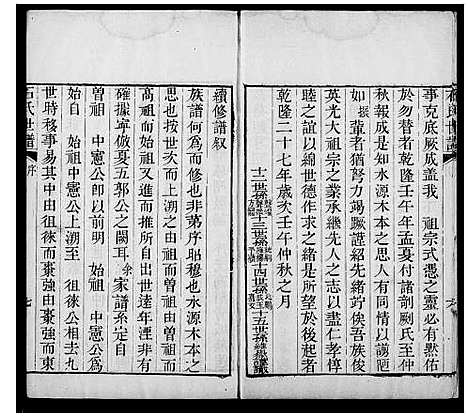 事克底厥成蓋我 祖宗式憑之靈必有然佑
於勿替者乾隆壬午年孟夏付諸剞劂氏至仲
秋相報成是知水源木本之思人有同
如振輩者猶努力竭蹶謹紹先
英光大祖宗之業承繼先人之志以盡仁孝惇
睦之誼以綿世德作求之緒是所望於後起者
乾隆二十七年歲次壬午仲秋之月
十二世孫 十三世孫 十四世孫 十五世孫
續修譜敘
族譜何為而修也非第序昭穆也水源木本之
思也按世次而上溯至 始祖由曾祖而
高祖而始祖又進而推所自出世遠年湮非有
確據寧倣夏五郭公之闕耳余家譜系定自
曾祖 中憲公即以前明 始祖 中憲公為
始自 始祖中憲公上溯至 徂徠公相去九
世時移事易其中由徂徠而棗強由棗強而東
石氏世譜 序 七